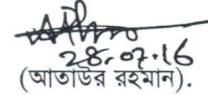 28.07.16
(আতাউর রহমান).